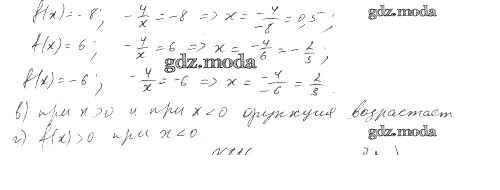 f(x)=-8; -4/x=-8 => x=-4/-8=0,5; gdz.moda
f(x)=6; -4/x=6 => x=-4/6=-2/3;
gdz.moda
f(x)=-6; -4/x=-6 => x=-4/-6=2/3.
в) при x>0 и при x<0 функция возрастает
г) f(x)>0 при x<0 gdz.moda